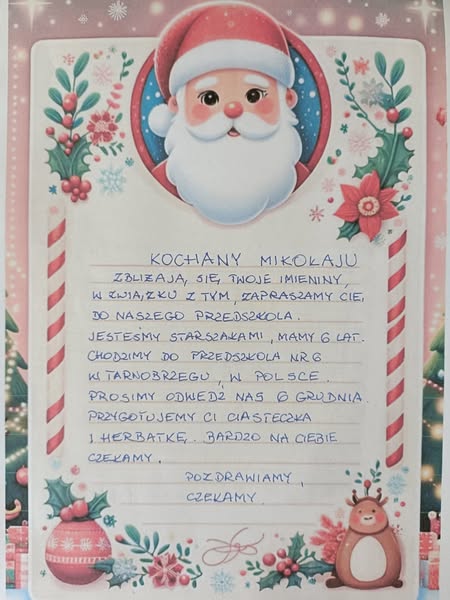 KOCHANY MIKOŁAJU
ZBLIŻAJĄ SIĘ TWOJE IMIENINY,
W ZWIĄZKU Z TYM, ZAPRASZAMY CIĘ,
DO NASZEGO PRZEDSZKOLA.
JESTEŚMY STARSZAKAMI, MAMY 6 LAT.
CHODZIMY DO PRZEDSZKOLA NR 6
W TARNOBRZEGU, W POLSCE.
PROSIMY ODWEDŹ NAS 6 GRUDNIA.
PRZYGOTUJEMY CI CIASTECZKA
I HERBATKĘ. BARDZO NA CIEBIE
CZEKAMY.
POZDRAWIAMY,
CZEKAMY.